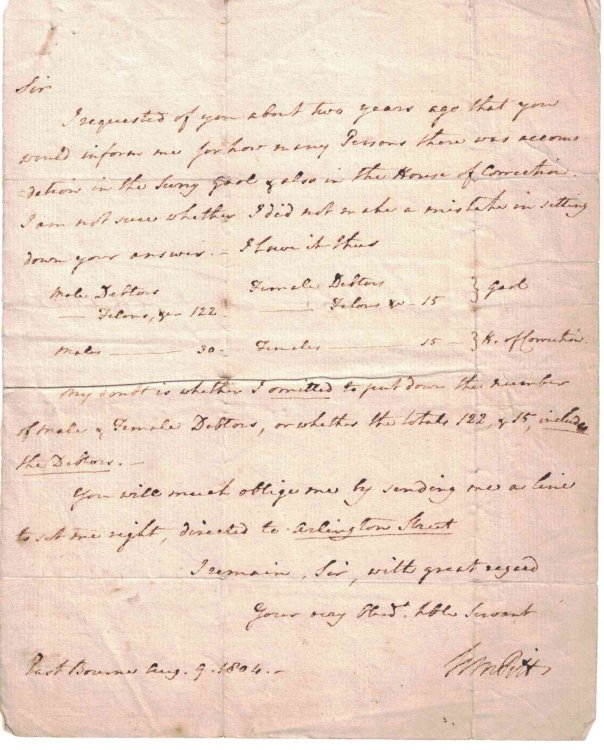 Sir
I requested of you about two years ago that you
would inform me for how many Persons there was accom
-dation in the Surry Gaol & also in the House of Correction.
I am not sure whether I did not make a mistake in setting
down your answer. – I have it thus
Male Debtors Female Debtors
— Felons, &c – 122 — Felons &c – 15 } Gaol
Males — 30 – Females — 15 – } H. of Correction.
My doubt is whether I omitted to put down the number
of Male & Female Debtors, or whether the totals 122, & 15, include
the Debtors. –
You will much oblige me by sending me a line
to set me right, directed to Arlington Street
I remain, Sir, with great regard
Your very obed.t hble Servant
East Bourne Aug. 9. 1804. – Wm